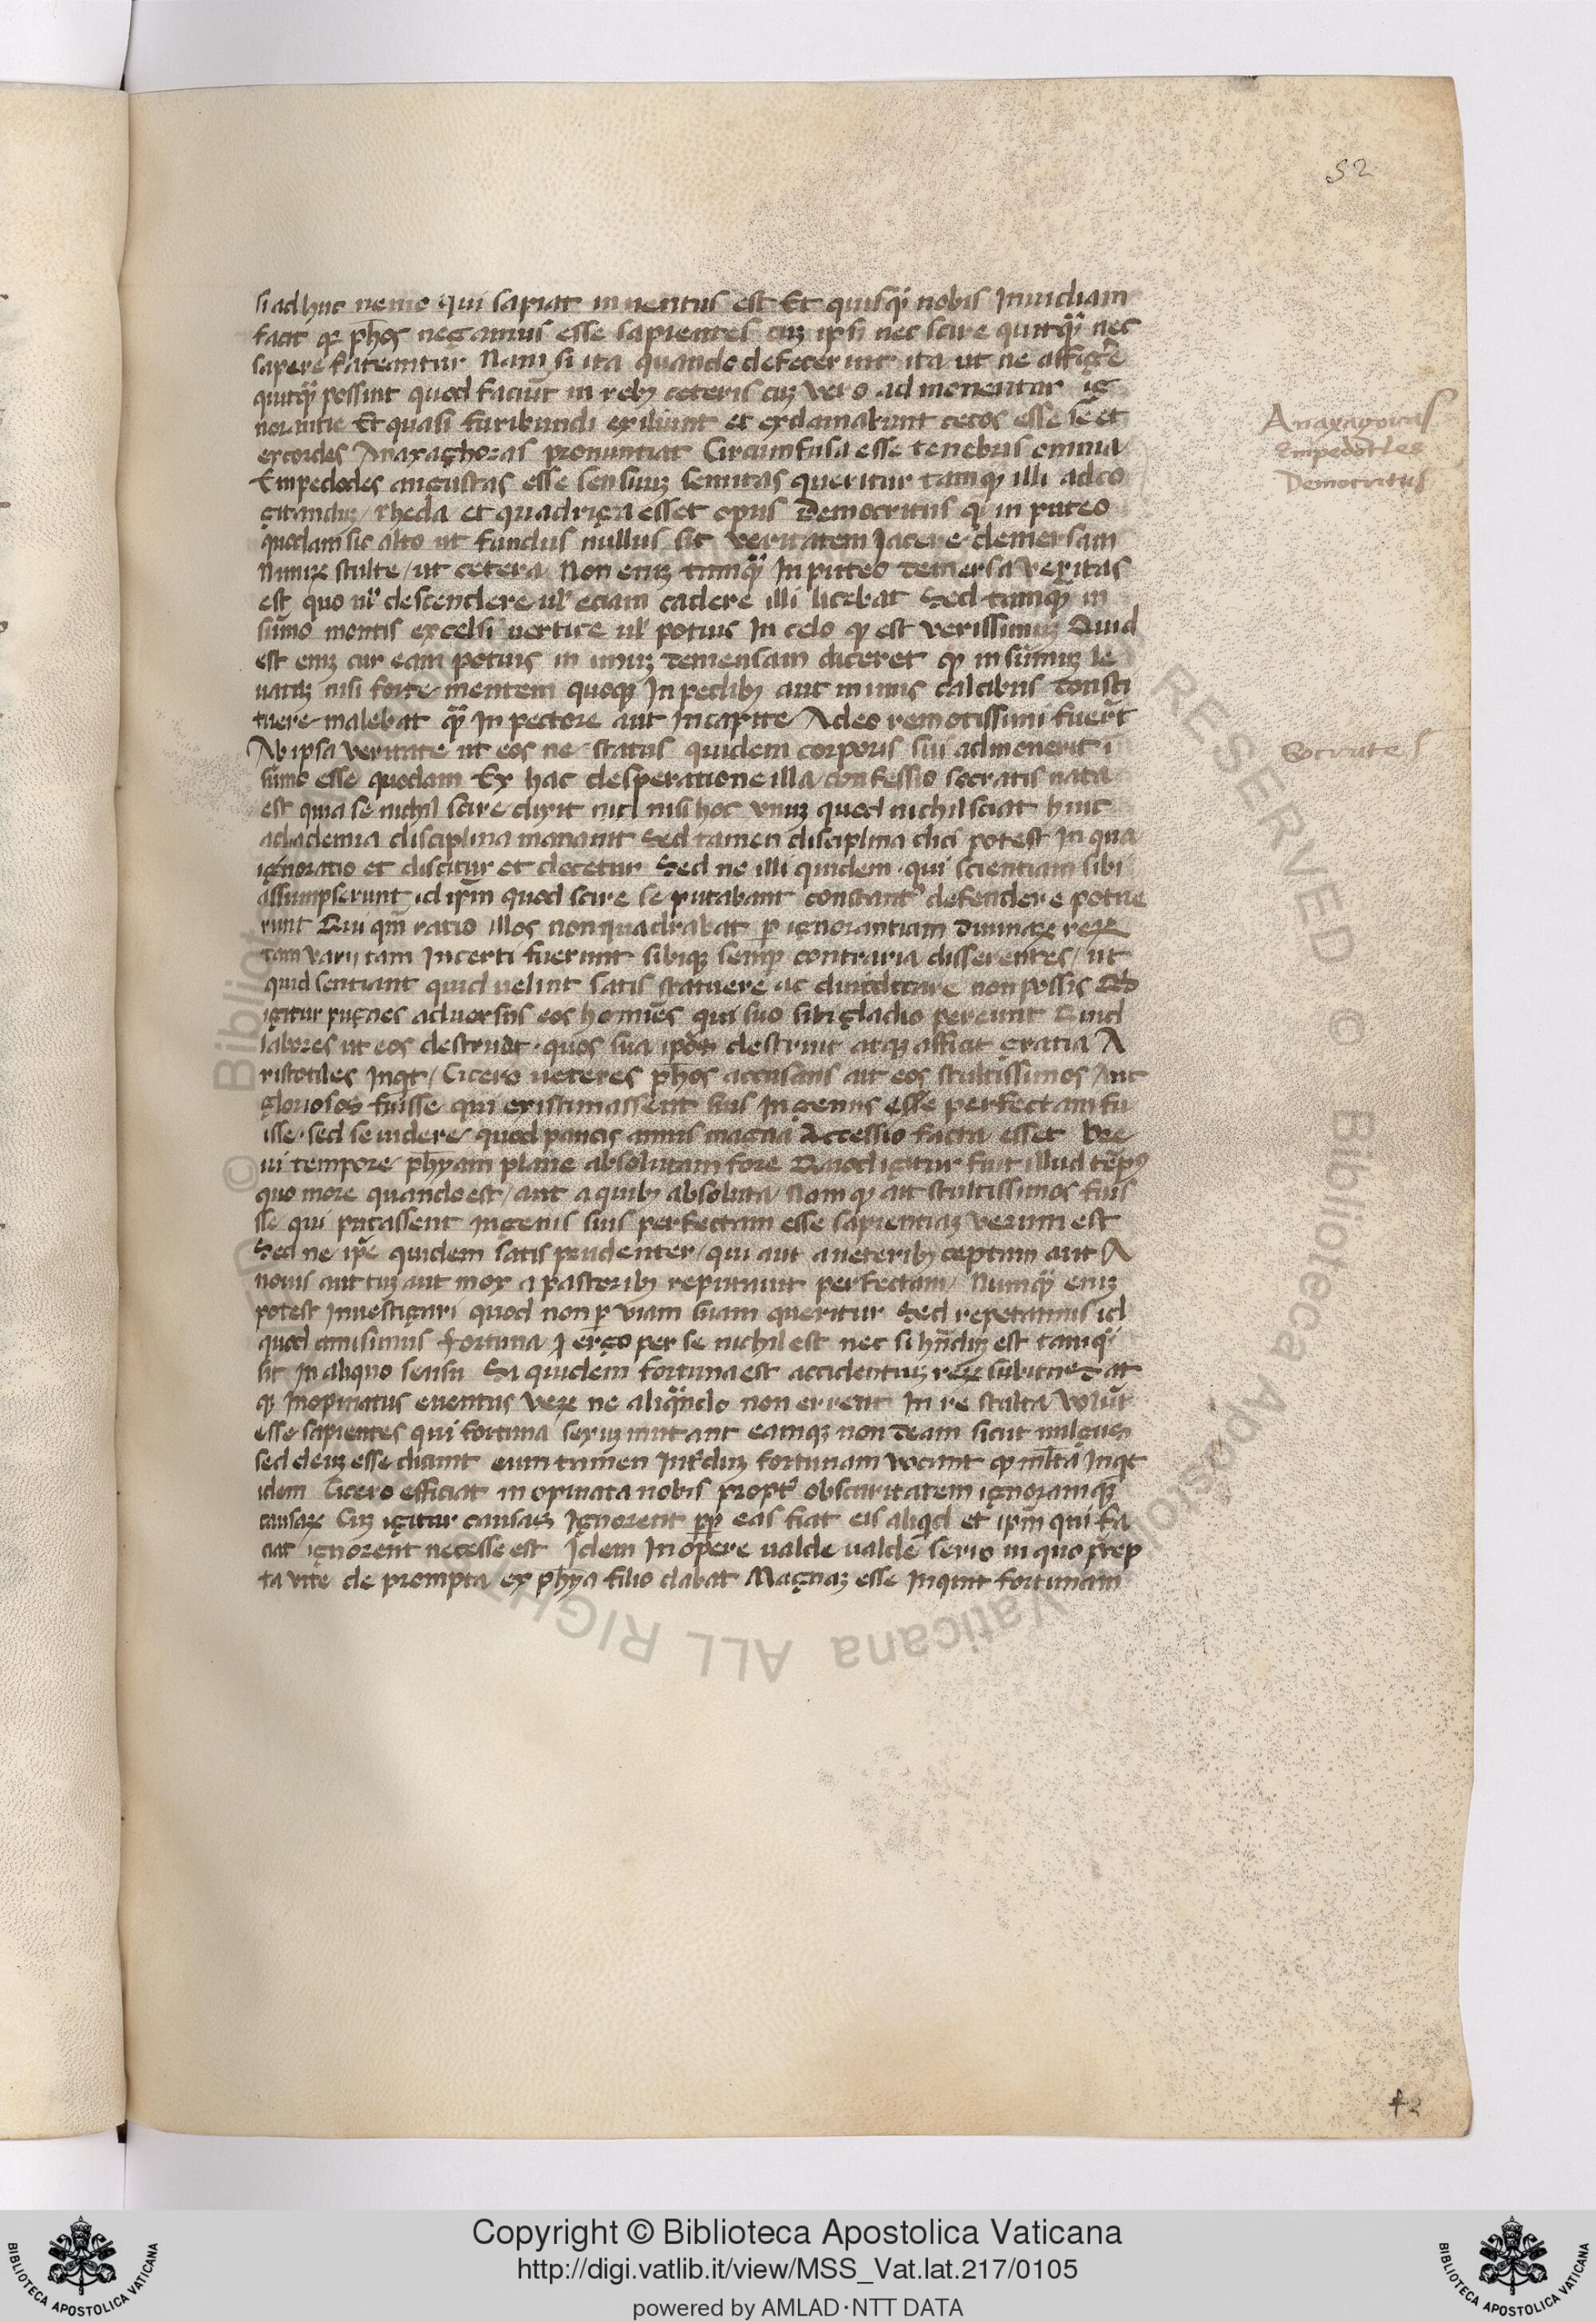 52
si adhuc nemo qui sapiat inuentus est Et quisq̃ nobis Inuidiam
facit qr ph̃os negamus esse sapientes cuʒ ipsi nec scire quitq̃ nec
sapere fateantur Nam si ita quando defecerint ita ut ne affigẽ
quitq̃ possint quod faciũt in rebʒ ceteris cuʒ vero admonentur ig
norantie Et quasi furibundi exiliunt et exclamabunt cecos esse se et
excordes Anaxaghoras pronuntiat Circumfusa esse tenebris omnia
Empedocles angustas esse sensuuʒ semitas queritur tamqʒ illi adco
gitanduʒ / rheda et quadriga esset opus Democritus qi in puteo
quodam sic alto ut fundus nullus sit veritatem Jacere demersam
Nimirʒ stulte / ut cetera Non enīʒ tamq̃ In puteo demersa veritas
est quo ul' descendere ul' eciam cadere illi licebat Sed tamqʒ in
sũmo montis excelsi uertice ul' potius In celo qʒ est verissimuʒ Quid
est enīʒ cur eam potius in imuʒ demensam diceret qʒ in sũmuʒ le
uatuʒ nisi forte mentem quoqʒ In pedibʒ aut in imis calcibus consti
tuere malebat q̃ In pectore aut In capite Adeo remotissimi fuer̃t
Ab ipsa veritate ut eos ne status quidem corporis sui admonerit ĩ
sũmo esse quodam Ex hac desperatione illa confessio socratis nata
est qua se nichil scire dixit nic nisi hoc vnuʒ quod nichil sciat hinc
achademia disciplina manauit Sed tamen disciplina dici potest In qua
ignoratio et discitur et docetur Sed ne illi quidem qui scientiam sibi
assumpserunt id ip̃m quod scire se putabant constant' defendere potue
runt Qui qm̃ ratio illos non quadrabat p ignorantiam diuinarʒ rerʒ
tam varij tam Incerti fuerunt sibiqʒ semp contraria disserentes / ut
quid sentiant quid uelint satis statuere ac diiudicare non possis Qd
igitur pugnes aduorsus eos homiẽs qui suo sibi gladio pereunt Quid
labores ut eos destruat quos sua ip̃os destruit atqʒ afficit gratia A
ristotiles Inqt / Cicero ueteres ph̃os accusans ait eos stultissimos / aut
gloriosos fuisse qui existimassent suis Ingenijs esse perfectam fu
isse sed se uidere quod paucis annis magna Accessio facta esset bre
ui tempore ph̃yam plane absolutam fore Quod igitur fuit illud tẽp9
quo more quando est / aut a quibʒ absoluta Nam qʒ ait stultissimos fuis
sse qui putassent Ingenis suis perfectam esse sapientiaʒ verum est
Sed ne ip̃e quidem satis prudenter / qui aut a ueteribʒ ceptum aut A
nouis auctuʒ aut mox a pasteribʒ reputauit perfectam / Numq̃ enīʒ
potest Inuestigari quod non p viam suam queritur Sed repetamus id
quod omisimus Fortuna J ergo per se nichil est nec si hñduʒ est tamq̃
sit In aliquo sensu Si quidem fortuna est accidentiuʒ rerʒ subitus at
qʒ Inopinatus euentus verʒ ne aliq̃ndo non errent In re stulta volũt
esse sapientes qui fortuna sexuʒ mutant eamqʒ non deam sicut uulgues
sed deuʒ esse dicunt eum tamen Int'duʒ fortunam vocant qʒ ml̃ta Inqt
idem Cicero efficiat inopinata nobis propt' obscuritatem ignoramqʒ
causarʒ Cuʒ igitur causas Ignorent pp eas fiat eis aliqd et ip̃m qui fa
ciat ignorent necesse est Idem In opere ualde ualde serio in quo p̃cep
ta vite de prompta ex ph̃ya filio dabat Magnaʒ esse Inquit fortunam
Anaxagoras
Empedocles
Democritus
Socrates
42
© Biblioteca Apostolica Vaticana ALL RIGHTS RESERVED
Copyright © Biblioteca Apostolica Vaticana
http://digi.vatlib.it/view/MSS_Vat.lat.217/0105
powered by AMLAD·NTT DATA
BIBLIOTECA APOSTOLICA VATICANA
BIBLIOTECA APOSTOLICA VATICANA